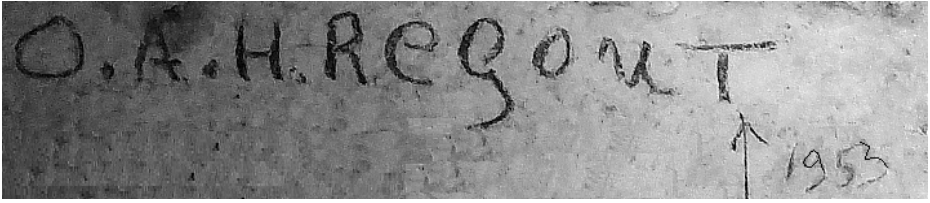 O.A.H.RegouT
1953